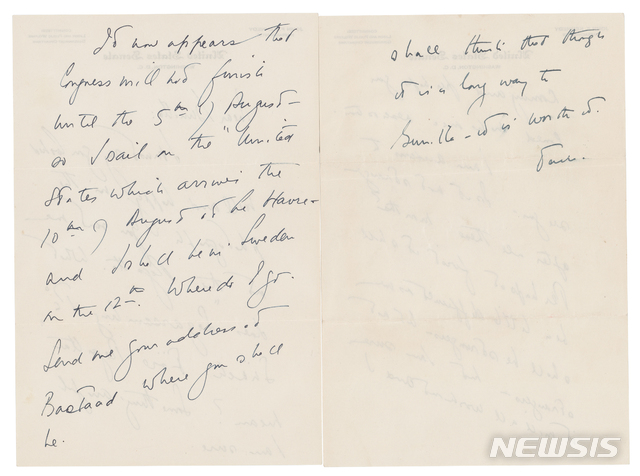 It now appears that
Congress will not finish
until the 5th of August –
so I sail on the "United
States which arrives the
10th of August at Le Havre –
and I shall be in Sweden
on the 12th. Where do I go.
Send me your address at
Bastaad where you shall
be.
shall think that though
it is a long way to
Gunilla – it is worth it.
Jack.
NEWSIS